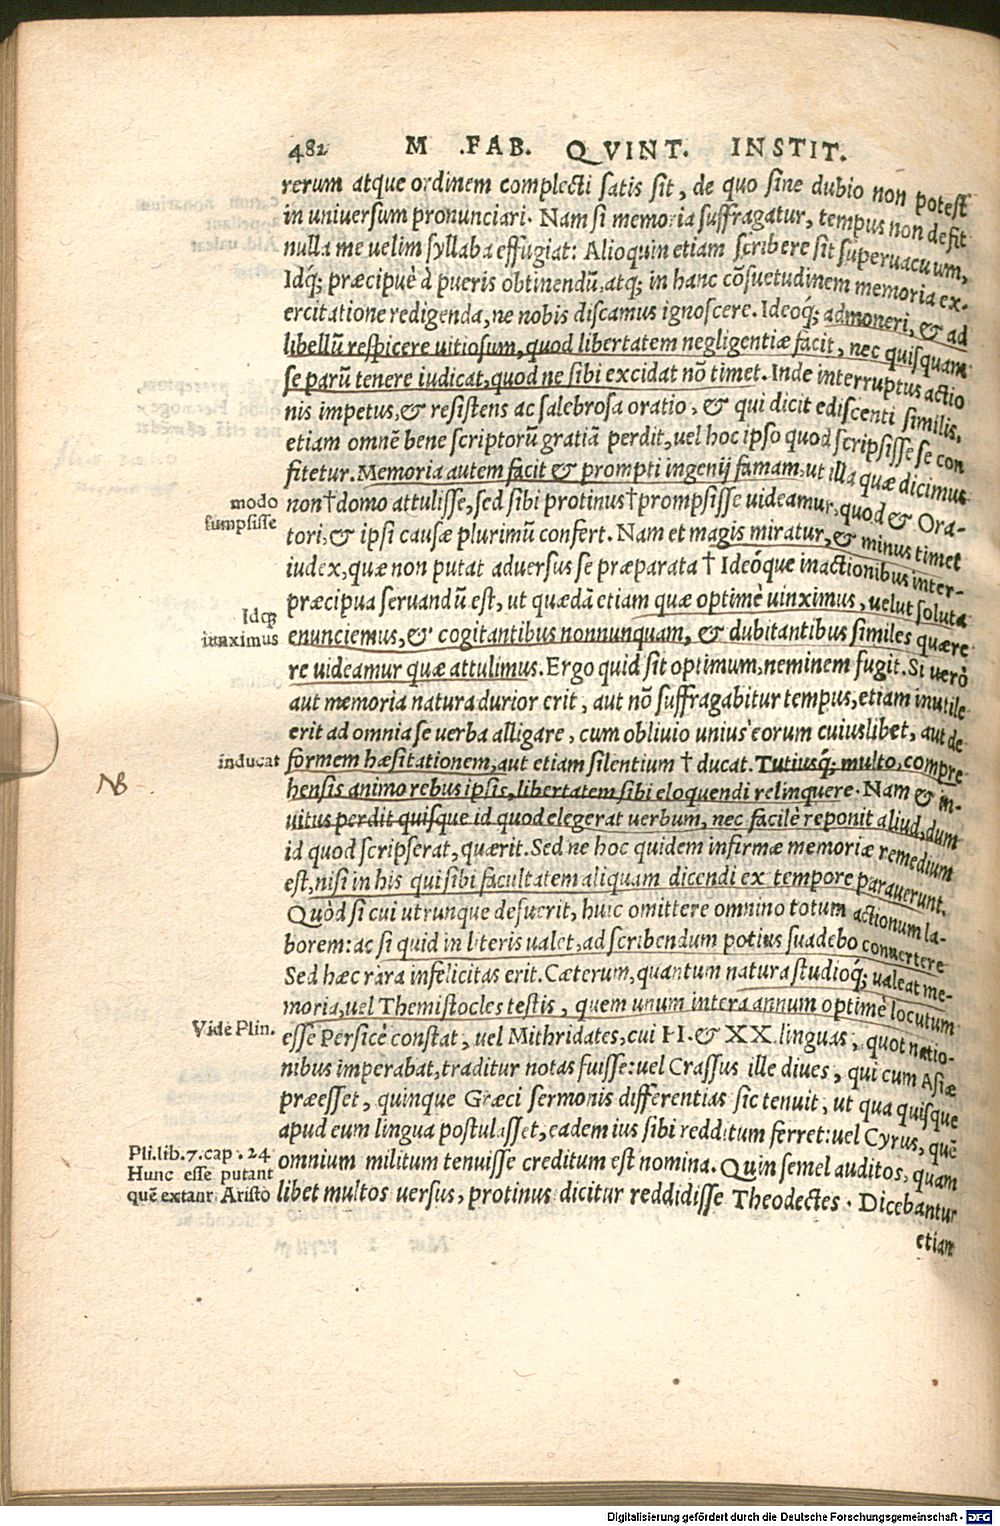 482 M .FAB. QVINT. INSTIT.
rerum atque ordinem complecti satis sit, de quo sine dubio non potest
in universum pronunciari. Nam si memoria suffragatur, tempus non defit
nulla me uelim syllaba effugiat: Alioquin etiam scribere sit superuacuum,
Idq́; præcipuè à pueris obtinendũ, atq; in hanc cõsuetudinem memoria ex-
ercitatione redigenda, ne nobis discamus ignoscere. Ideoq́; admoneri, & ad
libellũ respicere uitiosum, quod libertatem negligentiæ facit, nec quisquam
se parũ tenere iudicat, quod ne sibi excidat nõ timet. Inde interruptus actio
nis impetus, & resistens ac salebrosa oratio, & qui dicit ediscenti similis,
etiam omnẽ bene scriptorũ gratiã perdit, uel hoc ipso quod scripsisse se con
fitetur. Memoria autem facit & prompti ingenij famam, ut illa quæ dicimus
modo
non † domo attulisse, sed sibi protinus † prompsisse uideamur, quod & Ora-
sumpsisse
tori, & ipsi causæ plurimũ confert. Nam et magis miratur, & minus timet
iudex, quæ non putat aduersus se præparata † Ideóque inactionibus inter-
præcipua seruandũ est, ut quædã etiam quæ optimè uinximus, uelut soluta
Idq;
iunximus
enunciemus, & cogitantibus nonnunquam, & dubitantibus similes quærere
re uideamur quæ attulimus. Ergo quid sit optimum, neminem fugit. Si uerò
aut memoria natura durior erit, aut nõ suffragabitur tempus, etiam inutile
erit ad omnia se uerba alligare, cum obliuio unius eorum cuiuslibet, aut de
inducat
formem hæsitationem, aut etiam silentium † ducat. Tutiusq́; multo, compre
NB
hensis animo rebus ipsis, libertatem sibi eloquendi relinquere. Nam & in-
uitus perdit quisque id quod elegerat uerbum, nec facilè reponit aliud, dum
id quod scripserat, quærit. Sed ne hoc quidem infirmæ memoriæ remedium
est, nisi in his qui sibi facultatem aliquam dicendi ex tempore parauerunt.
Quòd si cui utrunque defuerit, huic omittere omnino totum actionum la-
borem: ac si quid in literis ualet, ad scribendum potius suadebo conuertere
Sed hæc rara infelicitas erit. Cæterum, quantum natura studioq́; ualeat me-
moria, uel Themistocles testis, quem unum intera annum optimè locutum
Vide Plin.
esse Persicè constat, uel Mithridates, cui II. & XX linguas, quot natio-
nibus imperabat, traditur notas fuisse: uel Crassus ille diues, qui cum Asiæ
præesset, quinque Græci sermonis differentias sic tenuit, ut qua quisque
apud eum lingua postulasset, eadem ius sibi redditum ferret: uel Cyrus, quẽ
Pli. lib. 7. cap. 24
Hunc esse putant
omnium militum tenuisse creditum est nomina. Quin semel auditos, quam
quẽ extant Aristo
libet multos uersus, protinus dicitur reddidisse Theodectes. Dicebantur
etiam
Digitalisierung gefördert durch die Deutsche Forschungsgemeinschaft - DFG